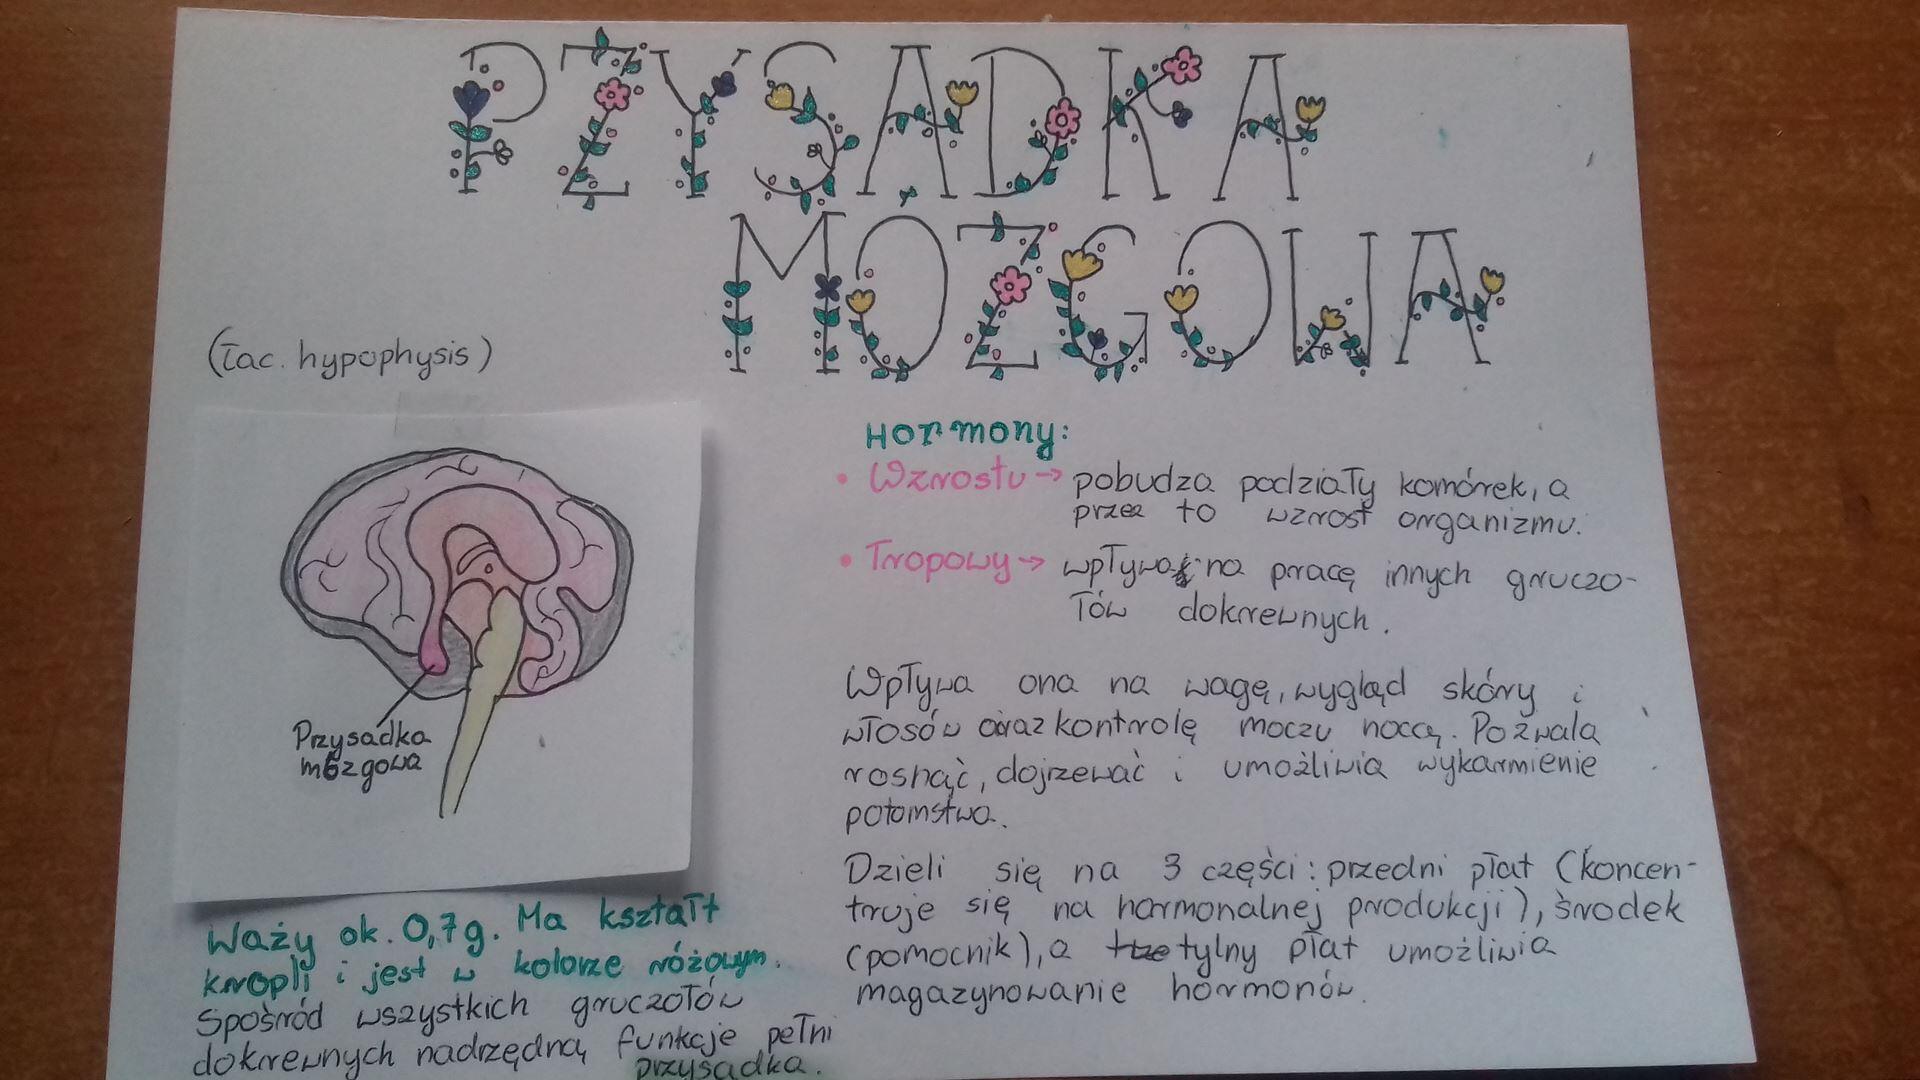 PZYSADKA
MOZGOWA
(łac. hypophysis)
Przysadka
mózgowa
Waży ok. 0,7g. Ma kształt
kropli i jest w kolorze różowym.
Spośród wszystkich gruczołów
dokrewnych nadrzędną funkcje pełni
przysadka.
Hormony:
• Wzrostu → pobudza podziały komórek, a
przez to wzrost organizmu.
• Tropowy → wpływa na pracę innych gruczo-
łów dokrewnych.
Wpływa ona na wagę, wygląd skóry i
włosów oraz kontrolę moczu nocą. Pozwala
rosnąć, dojrzewać i umożliwia wykarmienie
potomstwa.
Dzieli się na 3 części: przedni płat (koncen-
truje się na hormonalnej produkcji), środek
(pomocnik), a tylny płat umożliwia
magazynowanie hormonów.